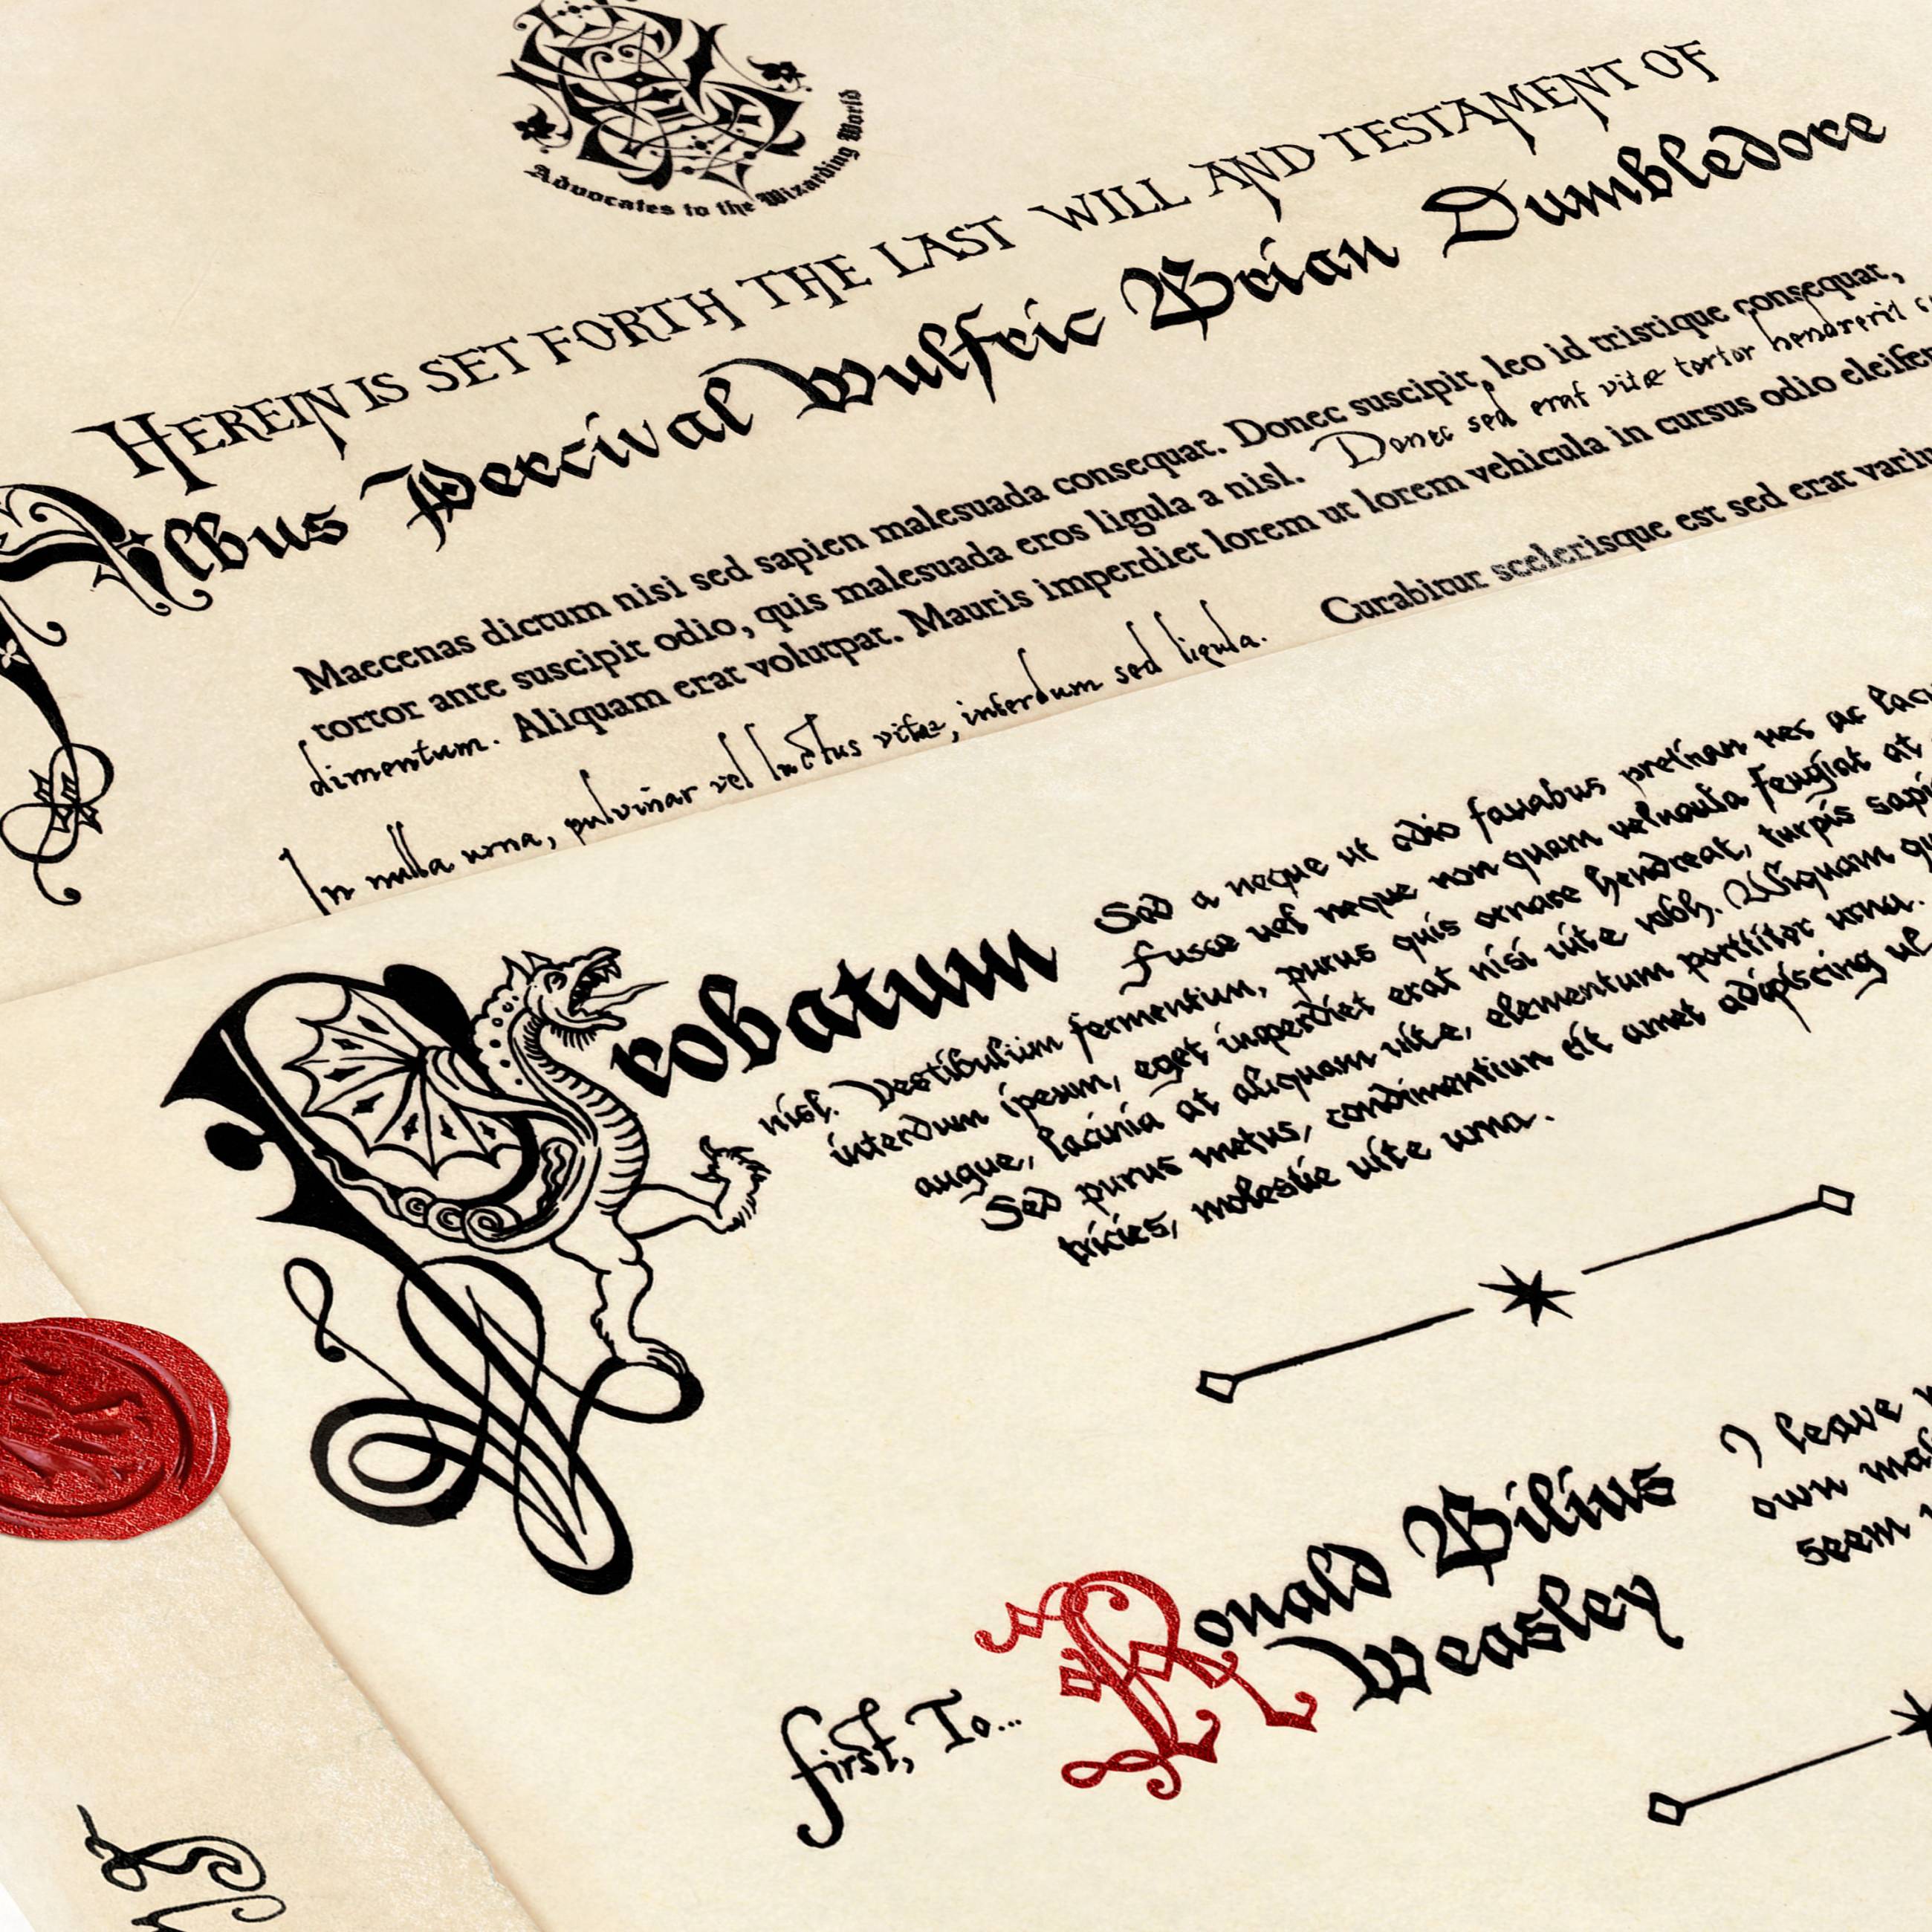 Advocates to the Wizarding World
HEREIN IS SET FORTH THE LAST WILL AND TESTAMENT OF
Albus Percival Wulfric Brian Dumbledore
Maecenas dictum nisi sed sapien malesuada consequat. Donec suscipit, leo id tristique consequat,
tortor ante suscipit odio, quis malesuada eros ligula a nisl. Donec sed erat vitæ tortor hendrerit
dimentum. Aliquam erat volutpat. Mauris imperdiet lorem ut lorem vehicula in cursus odio
In nulla urna, pulvinar vel luctus vitae, interdum sed ligula. Curabitur scelerisque est sed erat
Probatum
Sed a neque ut odio pretium nec ac
Fusce vel neque non quam feugiat at
nisl. Vestibulum fermentum, purus quis ornare hendreat, turpis
interdum ipsum, eget erat nisi Aliquam
augue, lacinia at aliquam elementum porttitor urna.
Sed purus metus, condimentum elit amet adipiscing
tricies, molestie urna.
first, To... Ronald Bilius
Weasley
I leave
own
seem